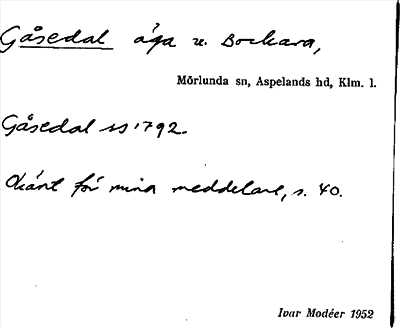 Gåsedal äga u. Bockara,
Mörlunda sn, Aspelands hd, Klm. l.
Gåsedal 1792.
Okänt för mina meddelare, s. 40.
Ivar Modéer 1952